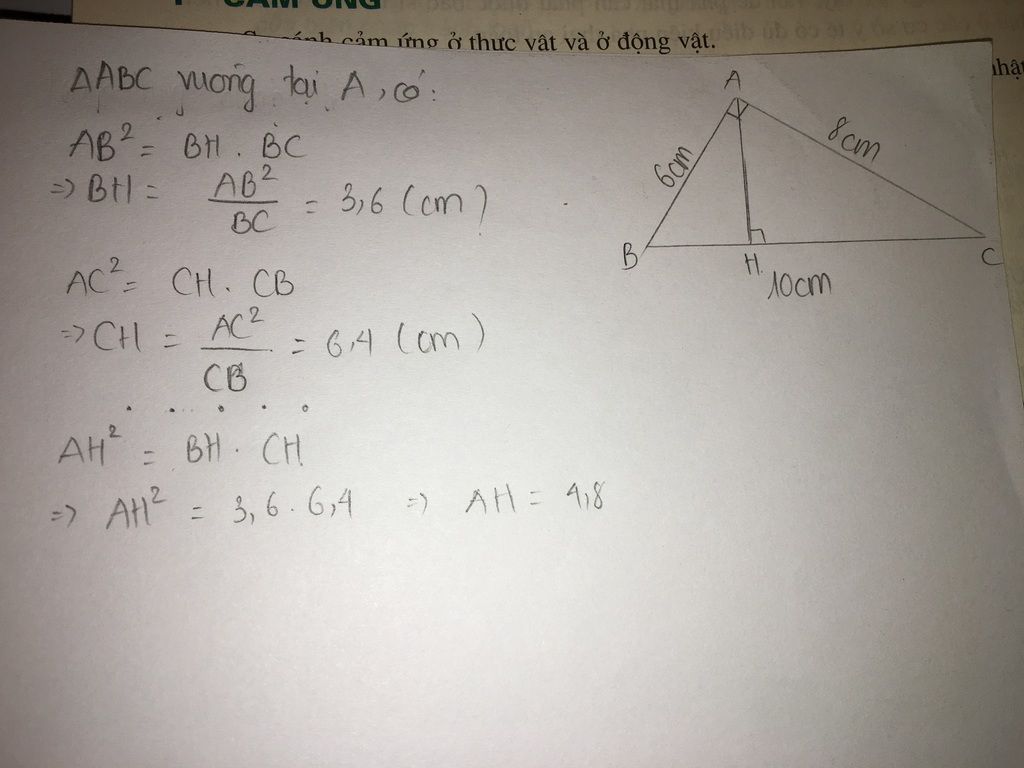 CẢM ỨNG
cảm ứng ở thực vật và ở động vật.
ΔABC vuông tại A, có:
AB² = BH . BC
=> BH = AB²/BC = 3,6 (cm)
AC² = CH . CB
=> CH = AC²/CB = 6,4 (cm)
AH² = BH . CH
=> AH² = 3,6 . 6,4 => AH = 4,8
A
6cm
8cm
B
H
C
10cm